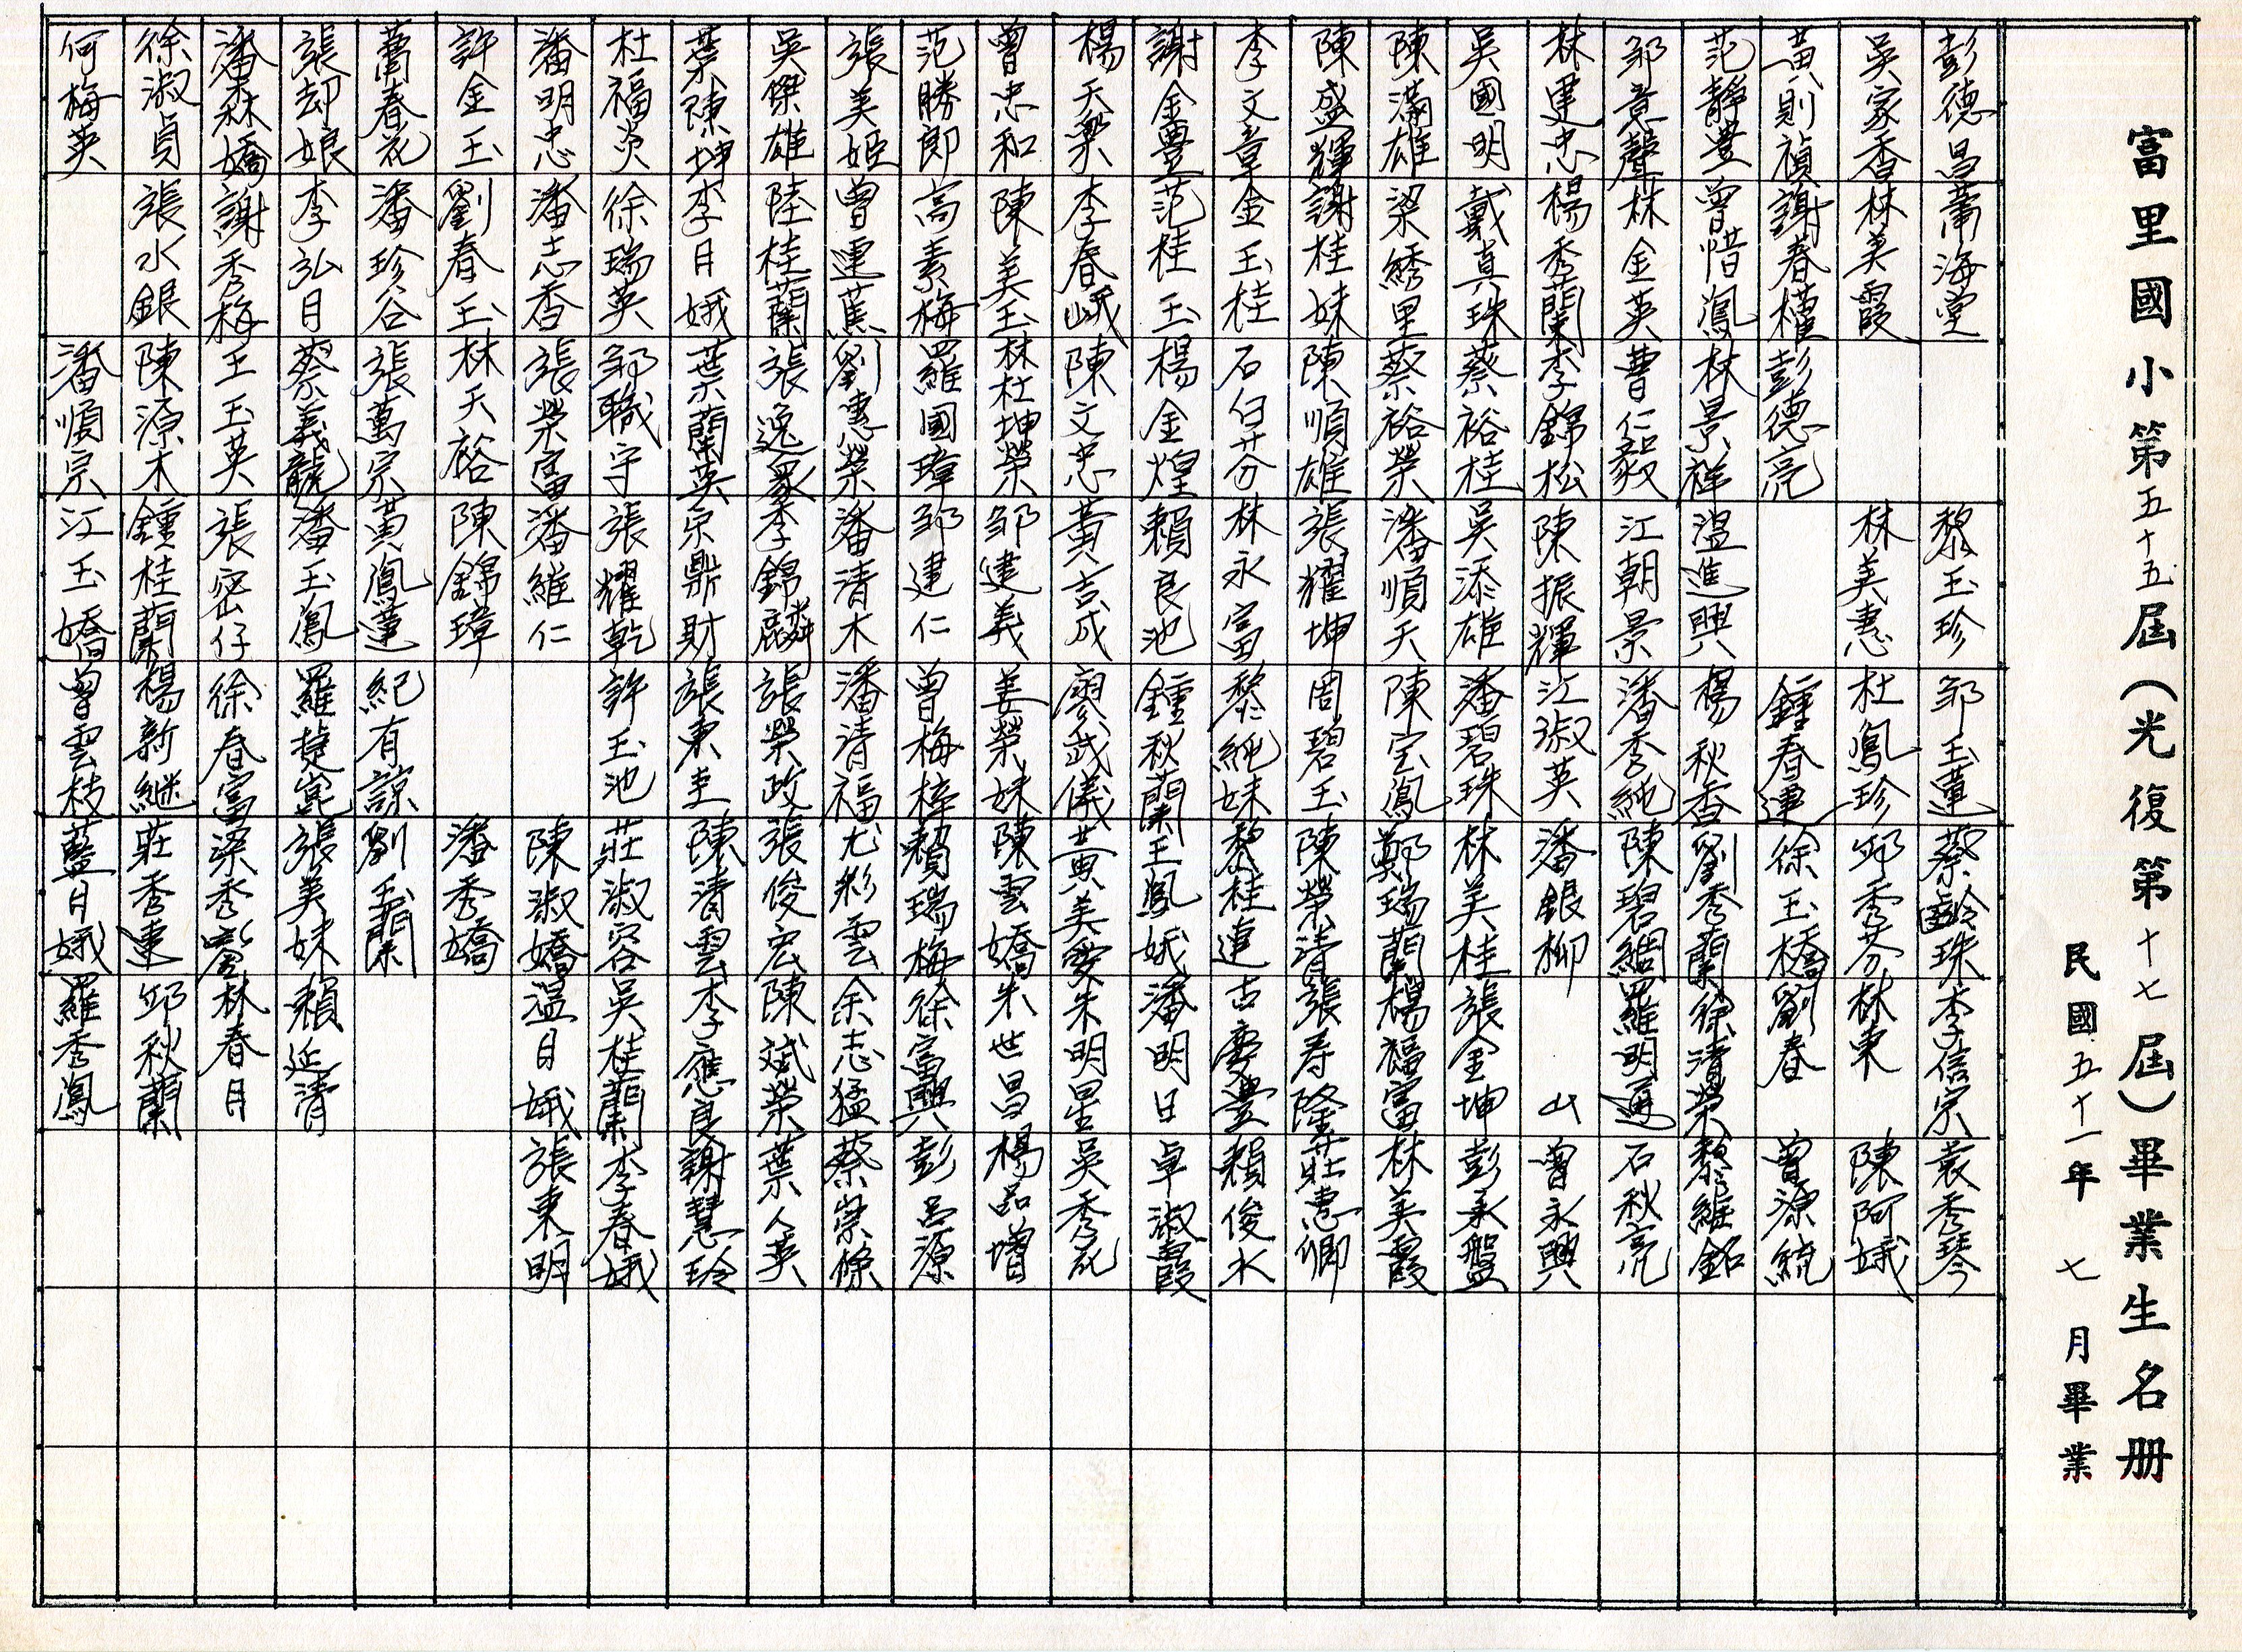 富里國小第五十五屆(光復第十七屆)畢業生名册
民國五十一年 七 月畢業
彭德昌 蕭海堂 黎玉珍 邹玉蓮 蔡齡珠 李信宗 袁秀琴
吳家香 林美霞 林美惠 杜鳳珍 邱秀芬 林東 陳阿娥
黃則禎 謝春權 彭德亮 鍾春連 徐玉橋 劉春 曾源統
范靜豊 曾惜鳳 林景祥 温進興 楊秋香 劉秀蘭 徐清榮 黎維銘
邹意聲 林金英 曹仁毅 江朝景 潘秀純 陳碧綢 羅明通 石秋亮
林建忠 楊秀蘭 李錦松 陳振輝 江淑英 潘銀柳 山 曾永興
吳國明 戴真珠 蔡裕桂 吳添雄 潘碧珠 林美桂 張金坤 彭永盤
陳滿雄 梁綉里 蔡裕榮 潘順天 陳宝鳳 鄭瑞蘭 楊福富 林美霞
陳盛輝 謝桂妹 陳順雄 張耀坤 周碧玉 陳榮清 張寿隆 莊惠卿
李文章 金玉桂 石白芬 林永富 黎純妹 黎桂連 古慶豊 賴俊水
謝金豊 范桂玉 楊金煌 賴良池 鍾秋蘭 王鳳娥 潘明日 卓淑霞
楊天樂 李春峨 陳文忠 黃吉成 廖武儀 黃美雯 朱明星 吳秀花
曾忠和 陳美玉 林杜坤榮 邹建義 姜榮妹 陳雲嬌 朱世昌 楊品增
范勝郎 高素梅 羅國璋 邹建仁 曾梅梓 賴瑞梅 徐富興 彭呂源
張美姬 曾運蕉 劉惠榮 潘清木 潘清福 尤彩雲 余志猛 蔡崇條
吳傑雄 陸桂蘭 張逸豪 李錦麟 張榮政 張俊宏 陳斌榮 葉人英
葉陳坤 李月娥 葉蘭英 宗鼎財 張東圭 陳清雲 李應良 謝慧玲
杜福炎 徐瑞英 邹職守 張耀乾 許玉池 莊淑容 吳桂蘭 李春娥
潘明忠 潘志香 張榮富 潘維仁 陳淑嬌 温日娥 張東明
許金玉 劉春玉 林天裕 陳錦璋 潘秀嬌
蕭春花 潘珍谷 張萬宗 黃鳳蓮 紀有諒 劉玉蘭
張却娘 李弘目 蔡義龍 潘玉鳳 羅捷崑 張美妹 賴延清
潘林嬌 謝秀梅 王玉英 張密仔 徐春富 梁秀鑾 林春月
徐淑貞 張水銀 陳源木 鍾桂蘭 楊新継 莊秀連 邱秋蘭
何梅英 潘順宗 江玉嬌 曾雲枝 藍日娥 羅秀鳳